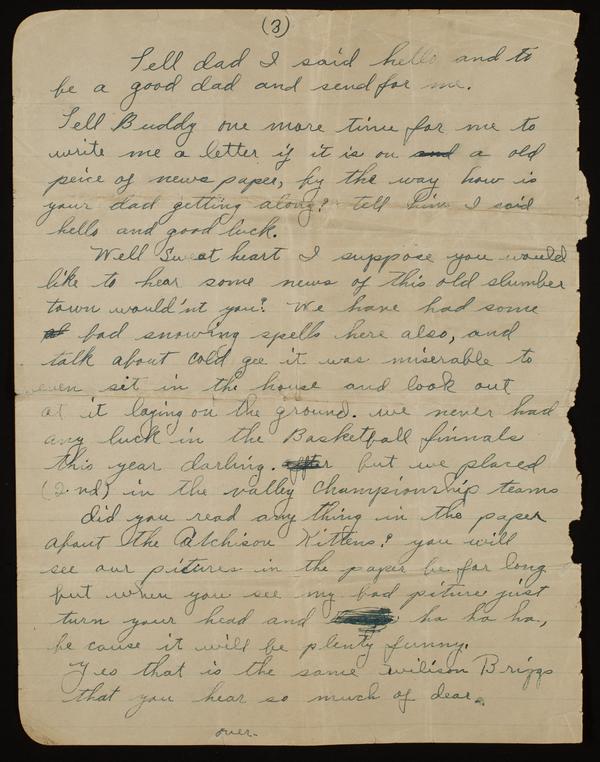 (3)
Tell dad I said hello and to
be a good dad and send for me.
Tell Buddy one more time for me to
write me a letter if it is on and a old
peice of news paper, by the way how is
your dad getting along? tell him I said
hello and good luck.
Well Sweet heart I suppose you would
like to hear some news of this old slumber
town would'nt you? We have had some
bad snowing spells here also, and
talk about cold gee it was miserable to
even sit in the house and look out
at it laying on the ground. we never had
any luck in the Basketball finnals
this year darling. after but we placed
(2nd) in the valley championship teams
did you read any thing in the paper
about the Atchison Kittens? you will
see our pitures in the paper be for long
but when you see my bad piture just
turn your head and ha ha ha,
be cause it will be plenty funny.
Yes that is the same wilison Briggs
that you hear so much of dear.
over-